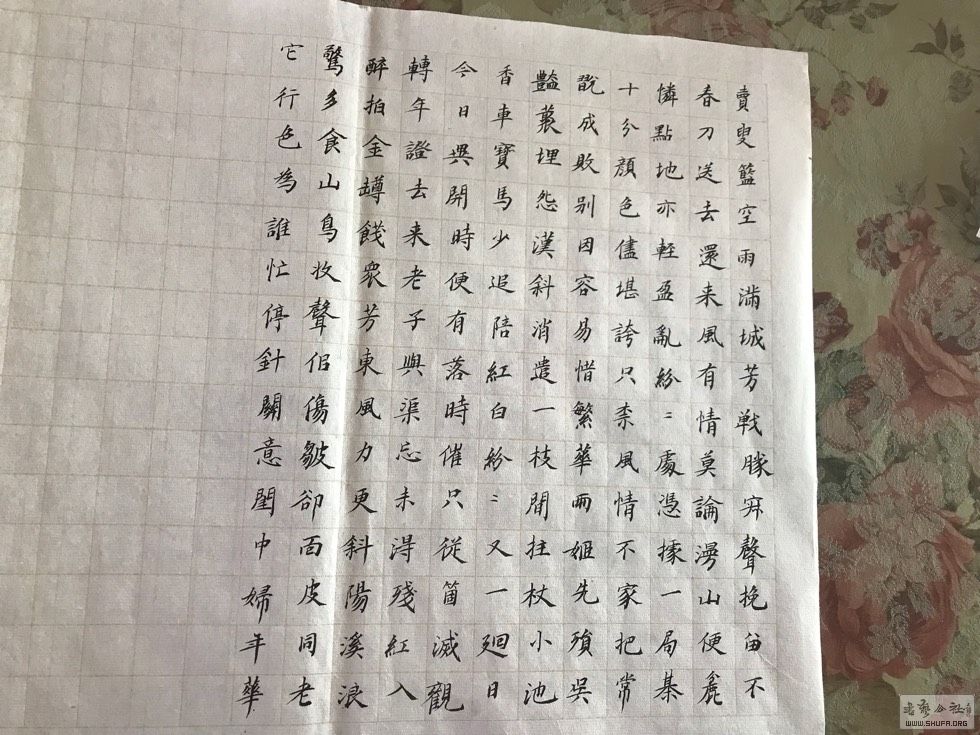 賣叟籃空雨滿城芳戦勝聲挽留不
春刀送去還来風有情莫論漫山便麁
憐點地亦輕盈亂紛〻處憑據一局棊
十分顏色儘堪誇只柰風情不家把常
翫成敗别因容易惜繁華兩姬先殞吳
豔蓑埋怨漢斜消遣一枝閒拄杖小池
香車寶馬少追陪紅白紛〻又一迴日
今日開時便有落時催只従笛滅觀
轉年證去来老子與渠忘未淂殘紅入
醉拍金罇餞衆芳東風力更斜陽溪浪
驚多食山鳥收聲佀傷皺卻面皮同老
它行色為誰忙停針關意閨中婦年華
WWW.SHUFA.ORG